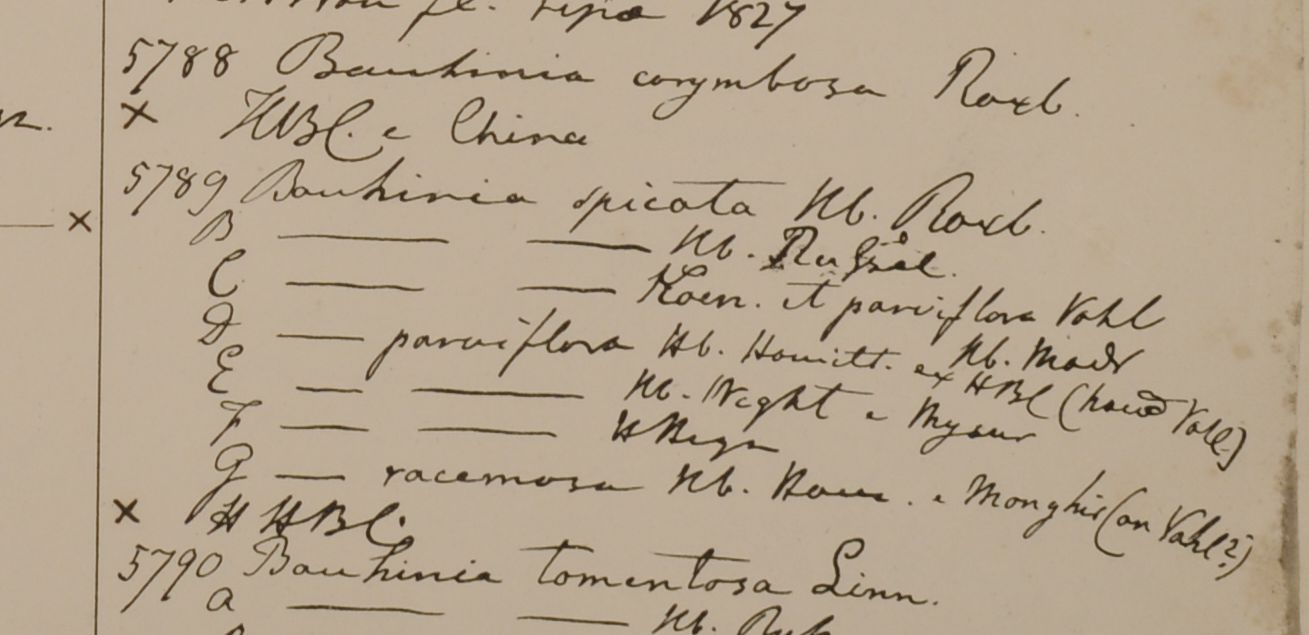 fl. ripa 1827
5788 Bauhinia corymbosa Roxb.
× HBC. e China
5789 Bauhinia spicata Hb. Roxb.
B — — Hb. Russel.
C — — Koen. et parviflora Vahl
Hb. Madr
D — parviflora Hb. Hamilt. ex HBC (haud Vahl)
E — — Hb. Wight e Mysur
F — — H
G — racemosa Hb. Ham. e Monghir (an Vahl?)
× H HBC.
5790 Bauhinia tomentosa Linn.
a — — Hb.